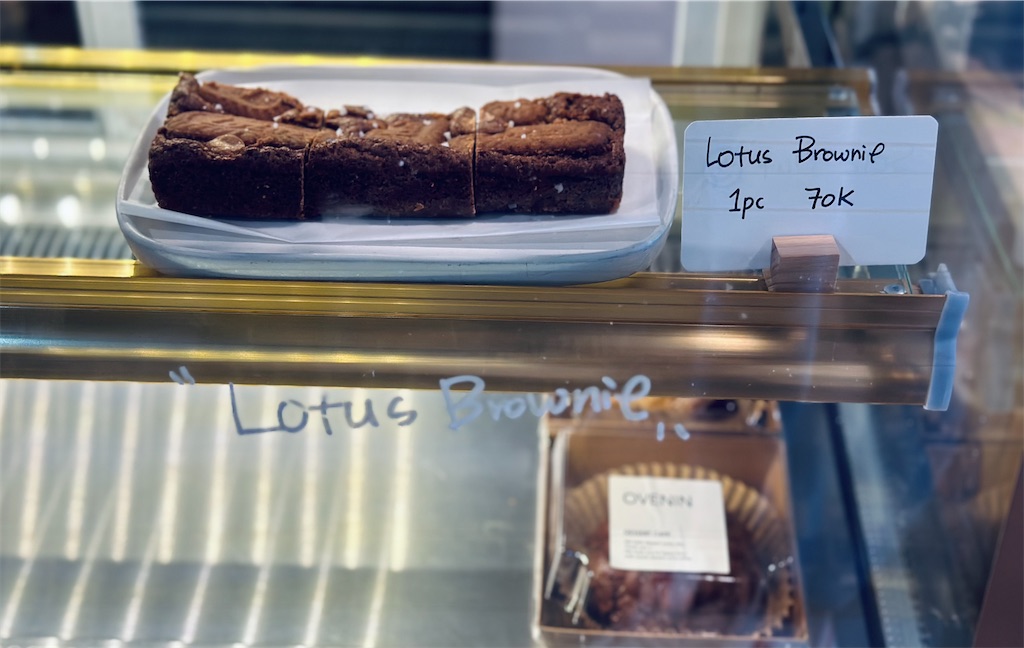 Lotus Brownie
1pc 70K
"Lotus Brownie"
OVENIN